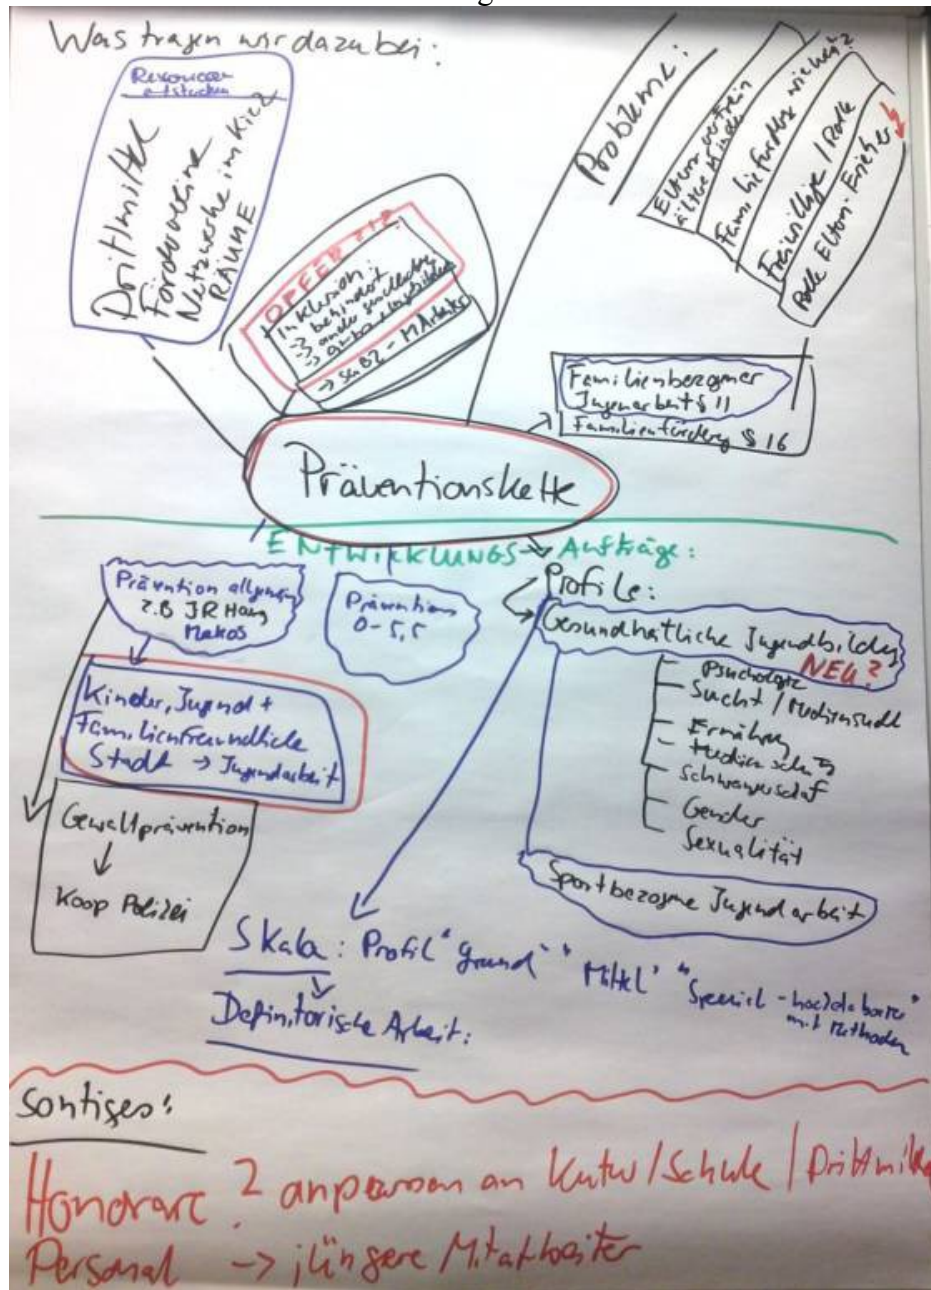 Was tragen wir dazu bei:
Ressourcen
Drittmittel
Fördervereine
Netzwerke im Kiez
RÄUME
OPFER
Inklusion:
→ behindert
→ SGBZ - MArbeiter
Probleme:
Eltern
ältere Kinder
Freiwillige / Rolle
Rolle Eltern Erzieher
Familienbezogner
Jugenarbeit § 11
Familienförderg § 16
Präventionskette
ENTWIKKLUNGS → Aufträge:
Prävention allgemein
z.B JR Haus
Makos
Prävention
0-5,5
Kinder, Jugend +
Familienfreundliche
Stadt → Jugendarbeit
Gewaltprävention
Koop Polizei
Profile:
Gesundheitliche Jugendbildg
NEU?
Psychologie
Sucht / Mediensucht
Ernährg
Schwangerschaf
Gender
Sexualität
Sportbezogne Jugendarbeit
Skala: Profil "grund" "Mittel" "Speziel -
mit Methoden
Definitorische Arbeit:
Sontiges:
Honorare ? anpassen an Kutur/Schule / Drittmittel
Personal → jüngere Mitarbeiter